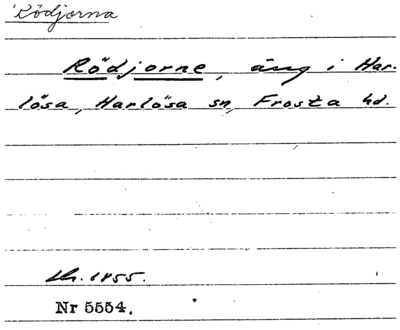 Rödjorna
Rödjorne, äng i Har-
lösa, Harlösa sn, Frosta hd.
1855.
Nr 5554.